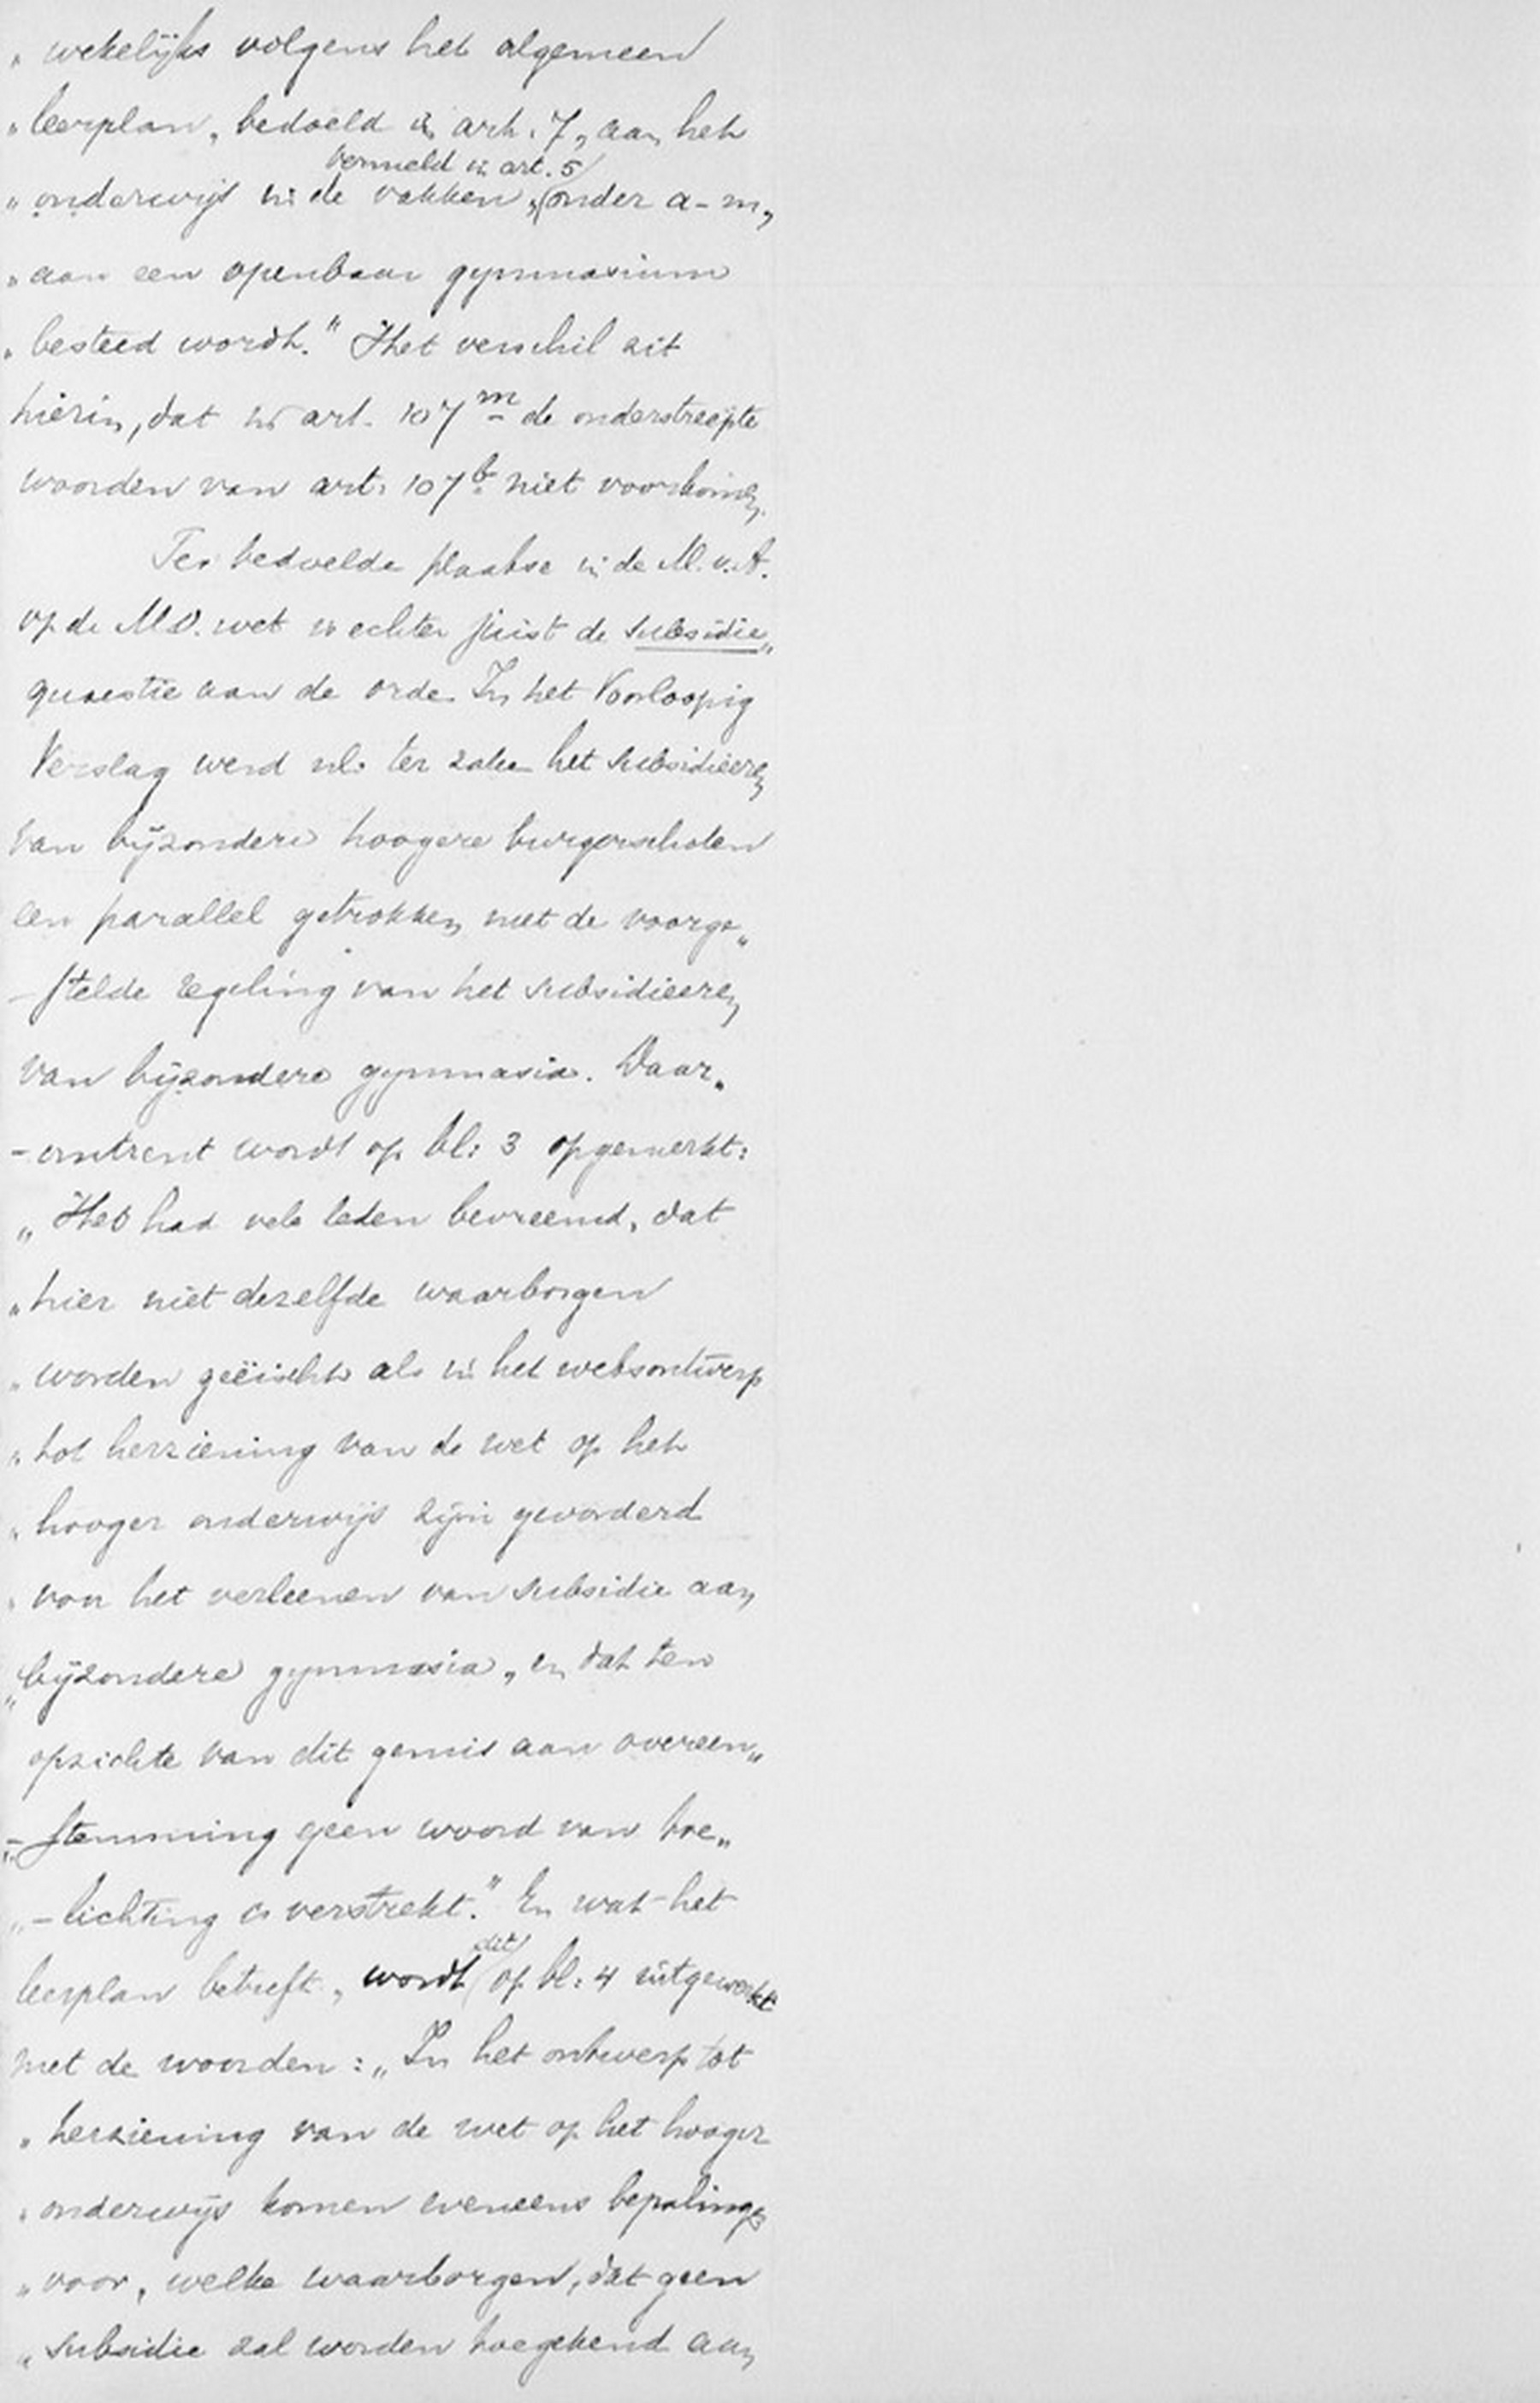 „ wekelijks volgens het algemeen
„ leerplan, bedoeld in art. 7, aan het
vermeld in art. 5
„ onderwijs in de vakken, (onder a-m,
„ aan een openbaar gymnasium
„ besteed wordt." Het verschil zit
hierin, dat in art. 107m de onderstreepte
woorden van art. 107b niet voorkomen.
Ter bedoelde plaatse in de M.v.A.
op de M.O. wet is echter juist de subsidie„
quaestie aan de orde. In het Voorloopig
Verslag werd nl. ter zake het subsidieeren
van bijzondere hoogere burgerscholen
een parallel getrokken met de voorge„
-stelde regeling van het subsidieeren
van bijzondere gymnasia. Daar„
-omtrent wordt op bl: 3 opgemerkt:
„Het had vele leden bevreemd, dat
„ hier niet dezelfde waarborgen
„ worden geëischt als in het wetsontwerp
„ tot herziening van de wet op het
„ hooger onderwijs zijn gevorderd
„ voor het verleenen van subsidie aan
„ bijzondere gymnasia, en dat ten
opzichte van dit gemis aan overeen„
„-stemming geen woord van toe„
„-lichting is verstrekt." En wat het
dit
leerplan betreft, wordt (op bl: 4 uitgewerkt
met de woorden: „In het ontwerp tot
„ herziening van de wet op het hooger
„ onderwijs komen eveneens bepalingen
„ voor, welke waarborgen, dat geen
„ subsidie zal worden toegekend aan